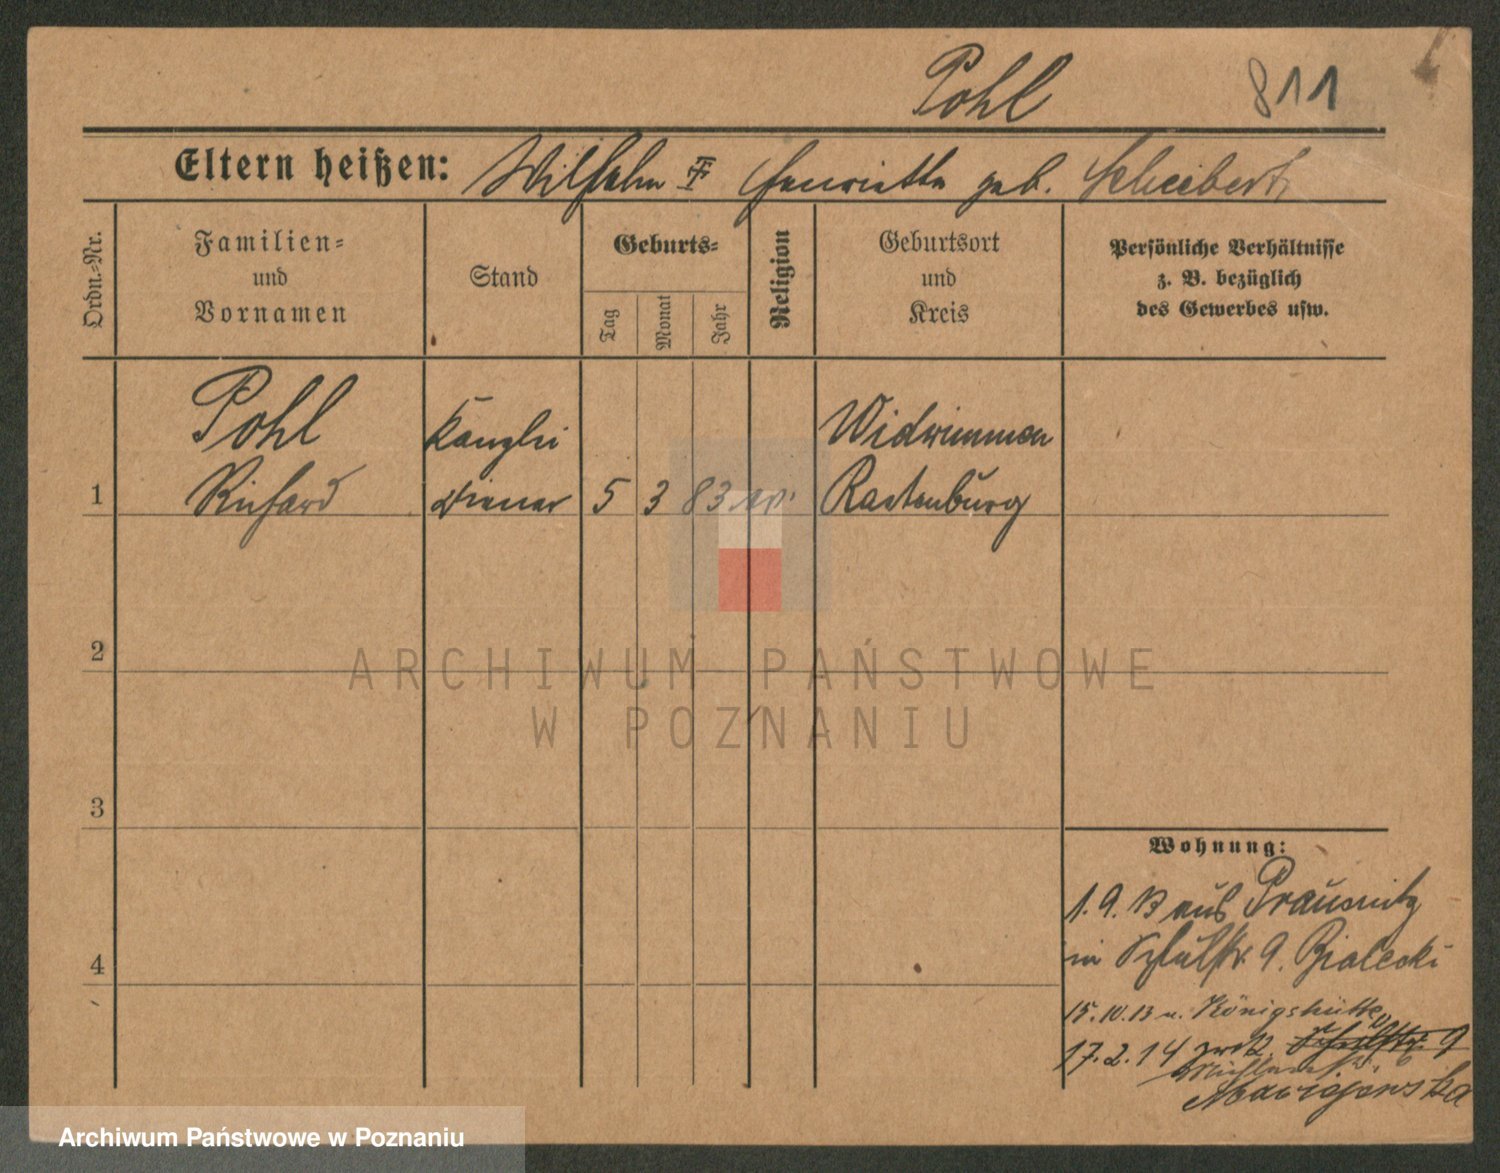 Pohl 811
Eltern heißen: Wilhelm Henriette geb. Scheibert
Ordn.-Nr.
Familien-
und
Vornamen
Stand
Geburts-
Tag
Monat
Jahr
Religion
Geburtsort
und
Kreis
Persönliche Verhältnisse
z. B. bezüglich
des Gewerbes usw.
Pohl Kanzlei
1 Richard diener 5 3 83 ev. Rastenburg
2
3
4
ARCHIWUM PAŃSTWOWE
W POZNANIU
Wohnung:
1.9.13 aus Prausnitz
in Schulstr. 9. Bialecki
15.10.13 n. Königshütte
17.2.14 zurck. Schulstr. 9
Maciejewska
Archiwum Państwowe w Poznaniu